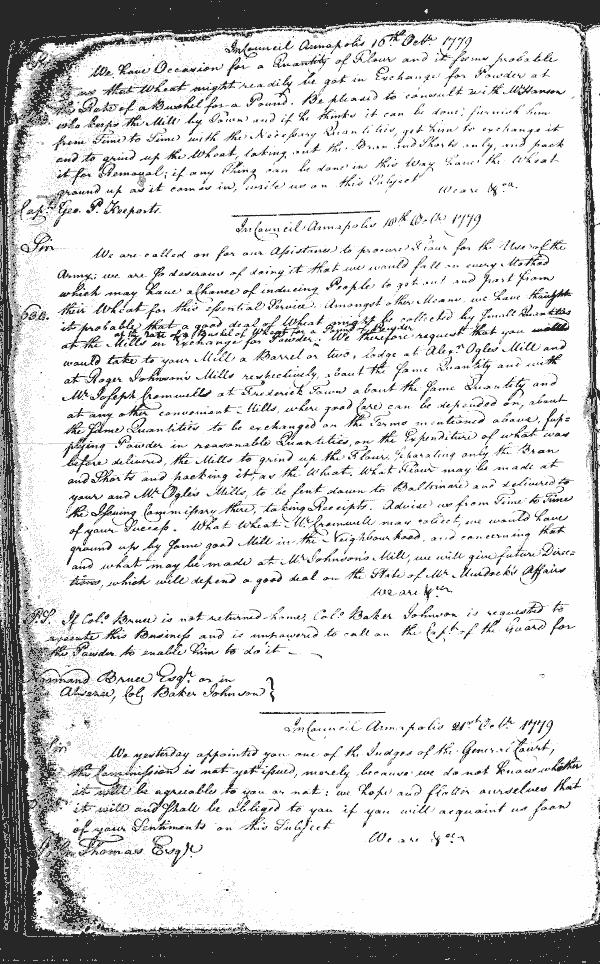 In Council Annapolis 16th Octr 1779
We have Occasion for a Quantity of Flour and it seems probable
us that Wheat might readily be got in Exchange for Powder at
the Rate of a Bushel for a Pound. Be pleased to consult with Mr Hanson
who keeps the Mill by Town and if he thinks it can be done; furnish him
from Time to Time with the Necessary Quantities, get him to exchange it
and to grind up the Wheat, taking out the Bran and Shorts only, and pack
it for Removal; if any thing can be done in this Way have the Wheat
ground up as it comes in, write us on this Subject
We are &ca.
Capt. Geo. P. Keeports.
In Council Annapolis 18th Octr 1779
Sir
We are called on for our Assistance to procure Flour for the Use of the
Army; we are so desirous of doing it that we would fall on every Method
which may have a chance of inducing People to get out and part from
their Wheat for this essential Service. Amongst other Means, we have thought
it probable that a good deal of Wheat might be collected by small Quantities
at the Rate of a Bushel of Wheat for a Pound of Powder
at the Mills in Exchange for Powder: We therefore request that you
would take to your Mill a Barrel or two, lodge at Alexr. Ogles Mill and
at Roger Johnson's Mills respectively, about the same Quantity and with
Mr Joseph Cromwells at Frederick Town about the same Quantity and
at any other convenient Mills, where good Care can be depended on, about
the same Quantities to be exchanged on the Terms mentioned above, sup-
plying Powder in reasonable Quantities, on the Expenditure of what was
before delivered, the Mills to grind up the Flour, separating only the Bran
and Shorts and packing it, as the Wheat, What Flour may be made at
your and Mr Ogles Mills, to be sent down to Baltimore and delivered to
the Issuing Commissary there, taking Receipts. Advise us from Time to Time
of your Success. What Wheat Mr Cromwell may collect, we would have
ground up by some good Mill in the Neighbourhood, and concerning that
and what may be made at Mr Johnson's Mill, we will give future Direc-
tions, which will depend a good deal on the State of Mr Murdock's Affairs
We are &ca
P.S. If Colo. Bruce is not returned home, Colo. Baker Johnson is requested to
execute this Business and is impowered to call on the Capt. of the Guard for
the Powder to enable him to do it
Normand Bruce Esqr. or in
Absence, Col. Baker Johnson }
In Council Annapolis 21st Octr 1779
Sir
We yesterday appointed you one of the Judges of the General Court,
the Commission is not yet issued, merely because we do not know whether
it will be agreeable to you or not; we hope and flatter ourselves that
it will and shall be obliged to you if you will acquaint us soon
of your Sentiments on this Subject
We are &ca
Thomas Esqr.